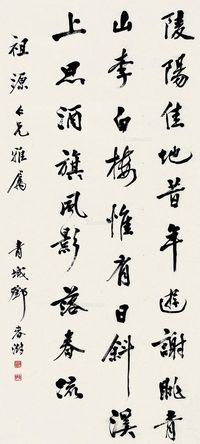 陵陽佳地昔年遊謝眺青
山李白樓惟有日斜溪
上思酒旗風影落春流
祖源仁兄雅屬
青城鄧春澍